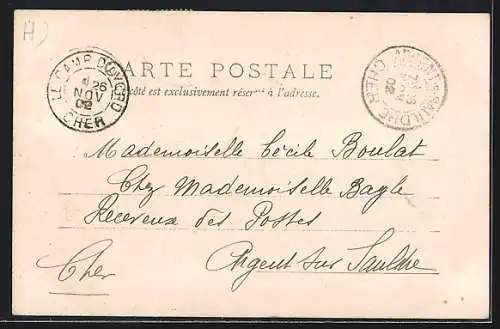 H)
CARTE POSTALE
Ce côté est exclusivement réservé à l'adresse.
LE CAMP D'AVORD
26
NOV
02
CHER
ARGENT-S-SAULDRE
02
CHER
Mademoiselle Cécile Boulat
Chez Mademoiselle Bayle
Receveuse des Postes
Argent sur Sauldre
Cher